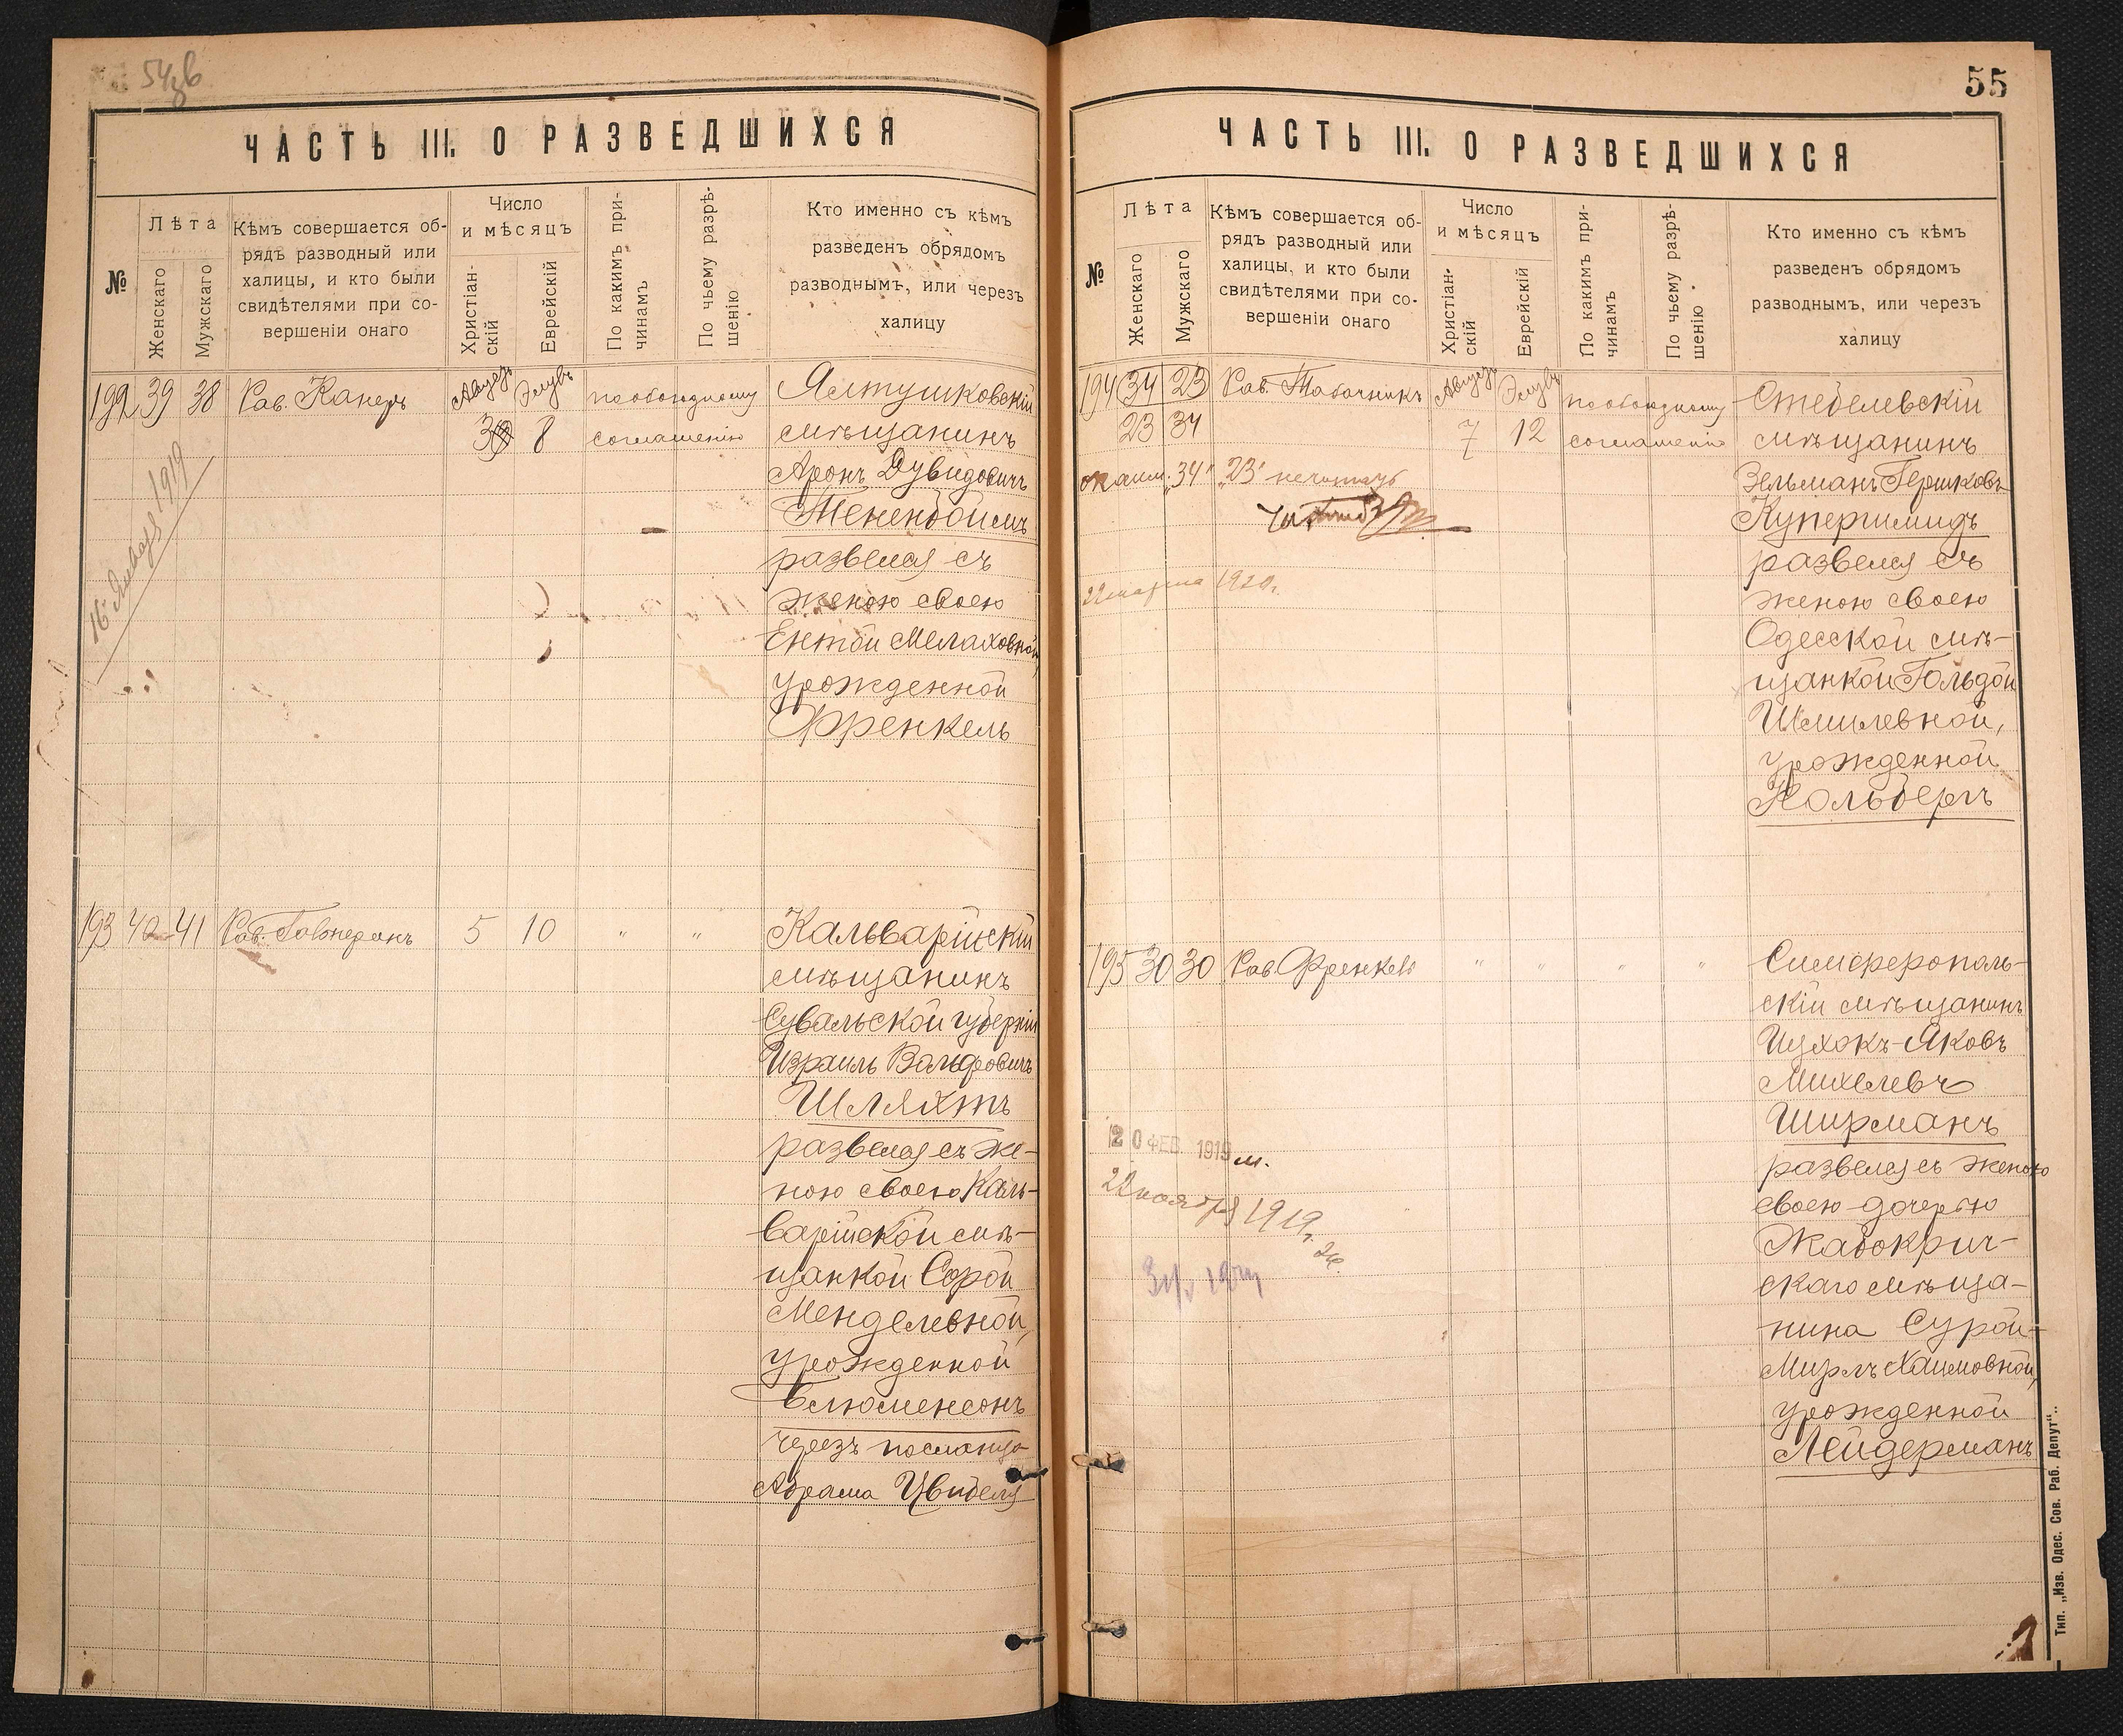 54зв
ЧАСТЬ III. О РАЗВЕДШИХСЯ
№
Лѣта
Женскаго
Мужскаго
Кѣмъ совершается об-
рядъ разводный или
халицы, и кто были
свидѣтелями при со-
вершеніи онаго
Число
и мѣсяцъ
Христіан-
скій
Еврейскій
По какимъ при-
чинамъ
По чьему разрѣ-
шенію
Кто именно съ кѣмъ
разведенъ обрядомъ
разводнымъ, или черезъ
халицу
192 39 38 Рав. Канеръ Августъ Элулъ пообоюдному Ялтушковскій
3 8 соглашенію мѣщанинъ
Аронъ Дувидовичъ
Тененбоймъ
развелся съ
женою своею
Ентой Мелаховной,
урожденной
Френкель
16 Января 1919
193 40 41 Рав. 5 10 " " Кальварійскій
мѣщанинъ
Сувальской губерніи
Израиль Вольфовичъ
Шляхтъ
развелся съ же-
ною своею Каль-
варійской мѣ-
щанкой Сорой
Менделевной,
урожденной
Блюменсонъ
черезъ посланца
Абрама Цвибеля
55
ЧАСТЬ III. О РАЗВЕДШИХСЯ
№
Лѣта
Женскаго
Мужскаго
Кѣмъ совершается об-
рядъ разводный или
халицы, и кто были
свидѣтелями при со-
вершеніи онаго
Число
и мѣсяцъ
Христіан-
скій
Еврейскій
По какимъ при-
чинамъ
По чьему разрѣ-
шенію
Кто именно съ кѣмъ
разведенъ обрядомъ
разводнымъ, или черезъ
халицу
194 34 23 Рав. Табачникъ Августъ Элулъ пообоюдному Стеблевскій
23 34 7 12 соглашенію мѣщанинъ
"34" "23" нечитать
Зельманъ Гершковъ
Купершмидъ
развелся съ
22 марта 1920 г.
женою своею
Одесской мѣ-
щанкой Гольдой
Шмилевной,
урожденной
Кольбергъ
195 30 30 Рав. Френкель " " " " Симферополь-
скій мѣщанинъ
Ицхокъ-Яковъ
Михелевъ
Ширманъ
развелся съ женою
своею дочерью
Жабокрич-
скаго мѣща-
нина Сурой-
Мирлъ Хаимовной,
урожденной
Лейдерманъ
20 ФЕВ. 1919 м.
22 ноября 1919 г. ж.
Тип. „Изв. Одес. Сов. Раб. Депут“.